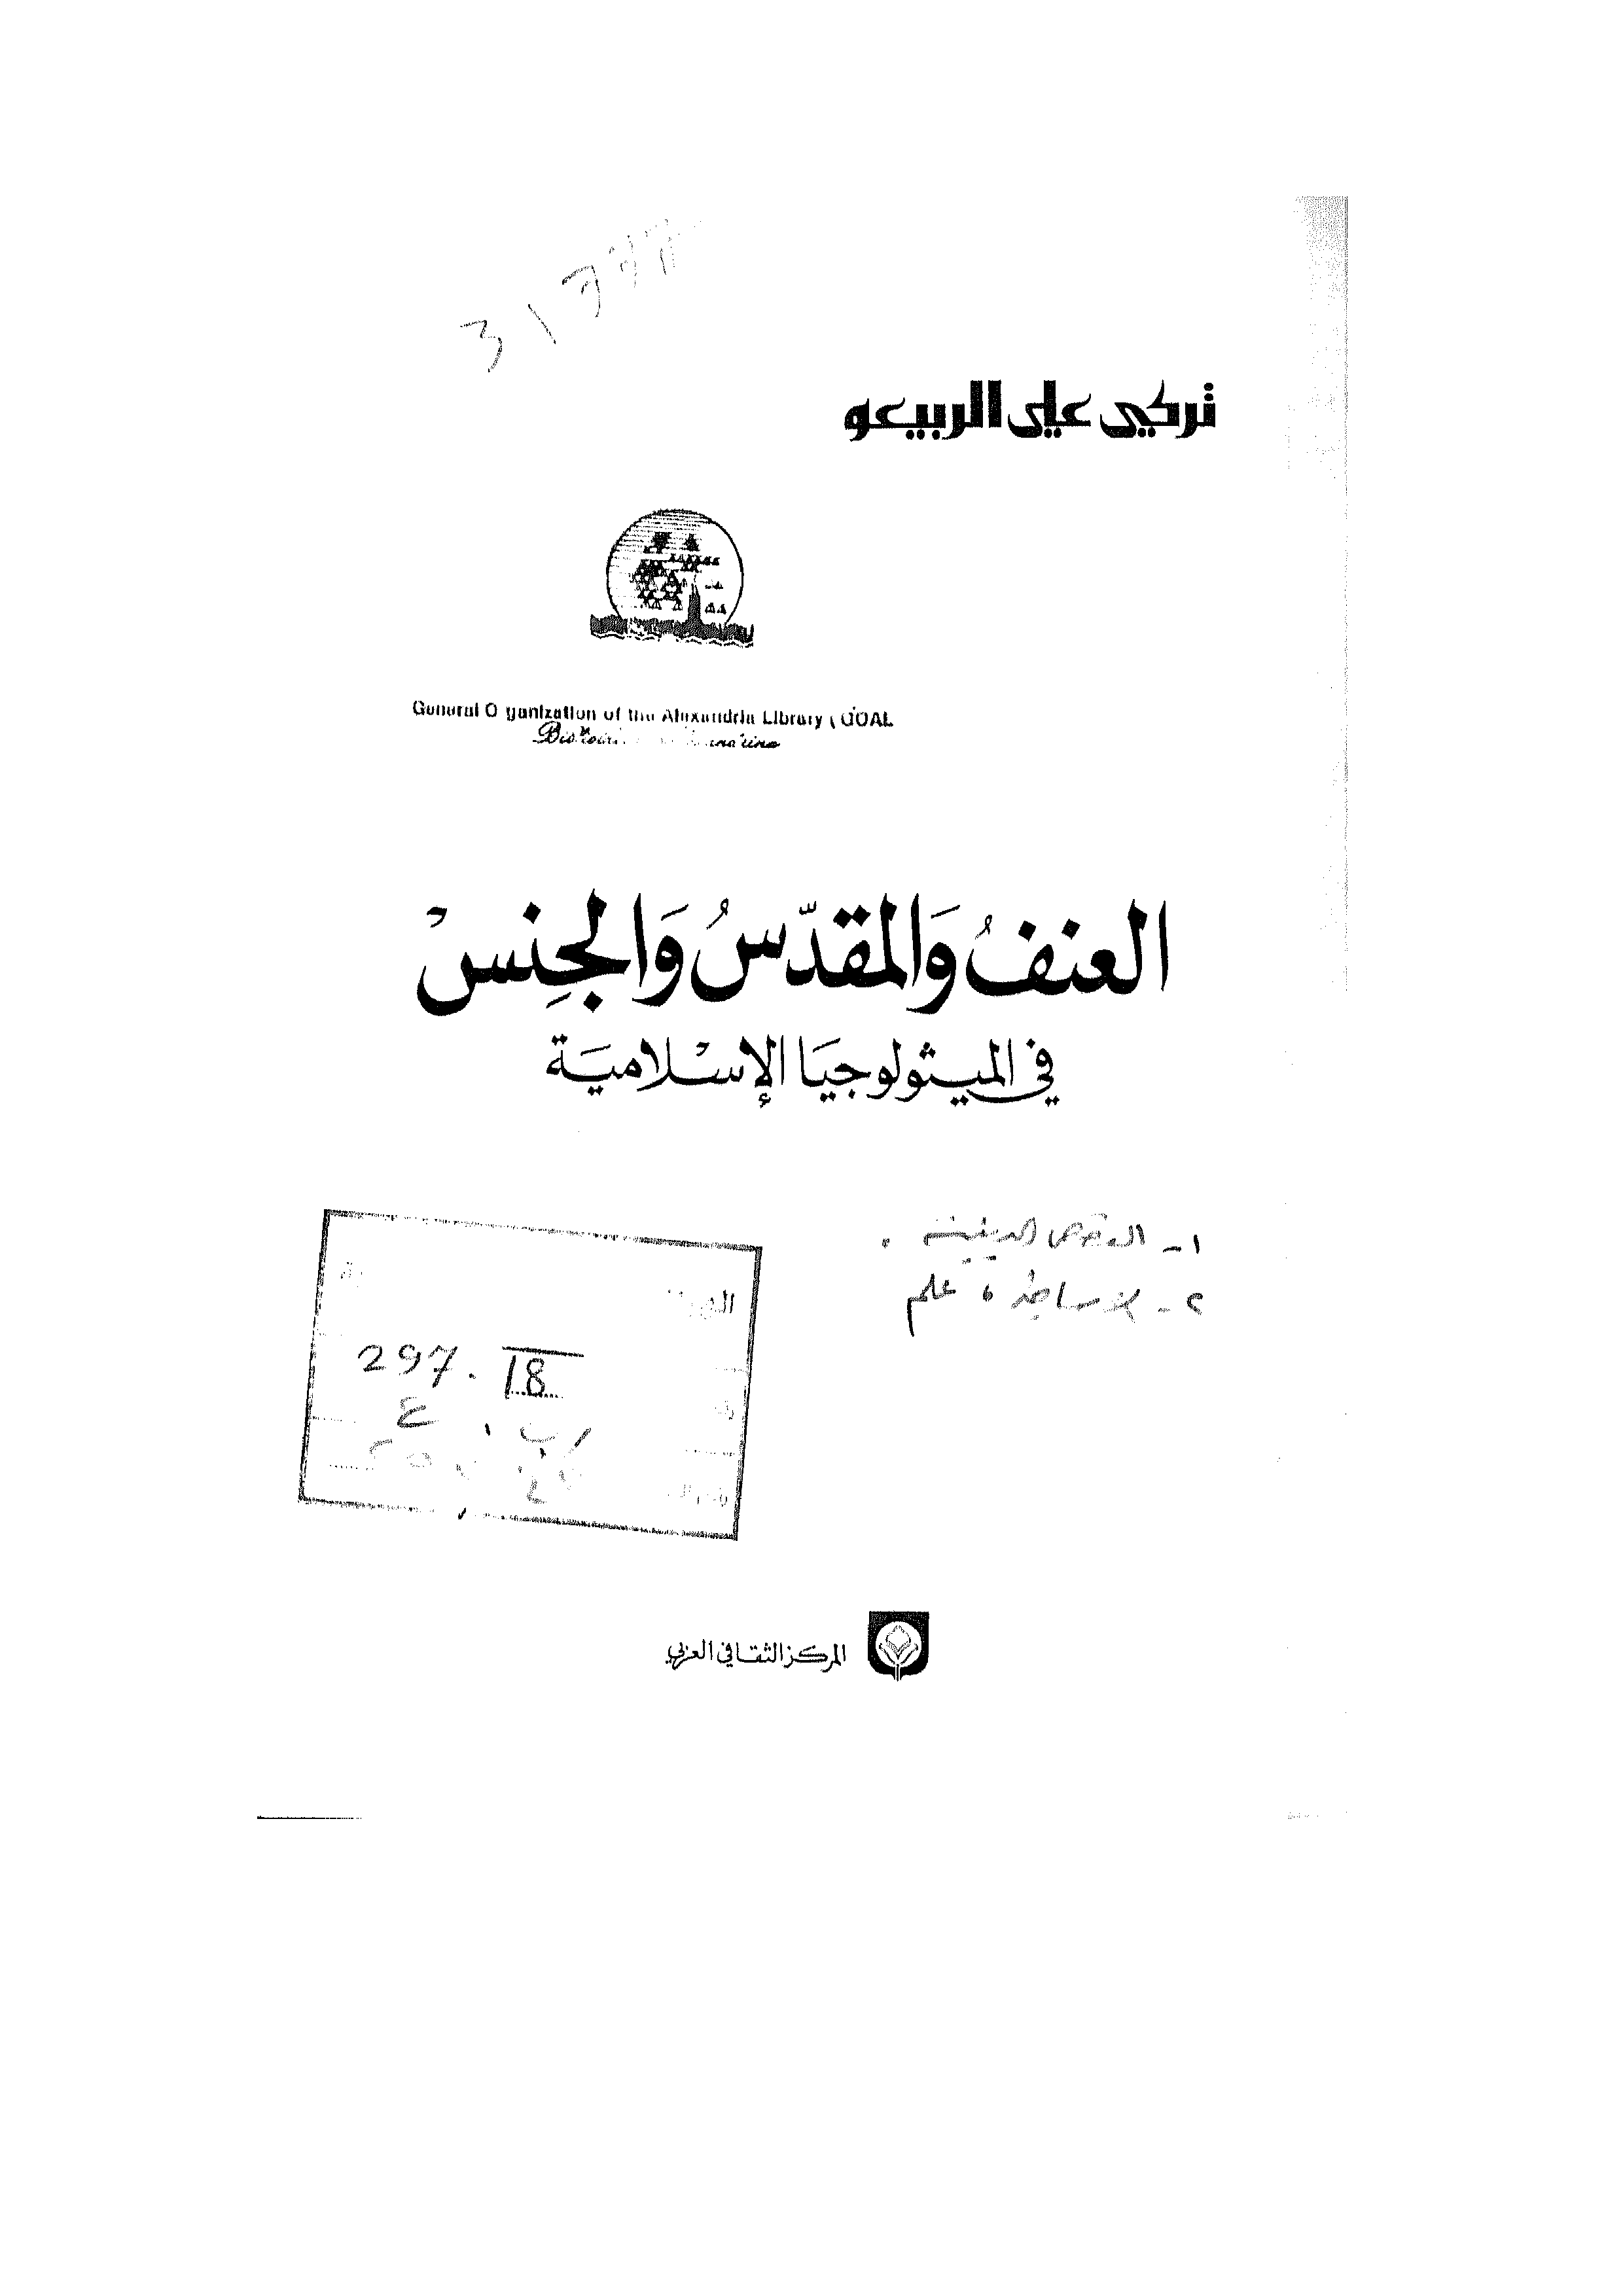 تركي علي الربيعو
General O ganization of the Alexandria Library ( GOAL
العنفُ وَالمقدّسُ وَالجِنسْ
في الميثولوجيَا الإسْلاميَة
١- القصص الدينية .
٢- الأساطير ، علم
297. 18
ع
المركز الثقافي العربي